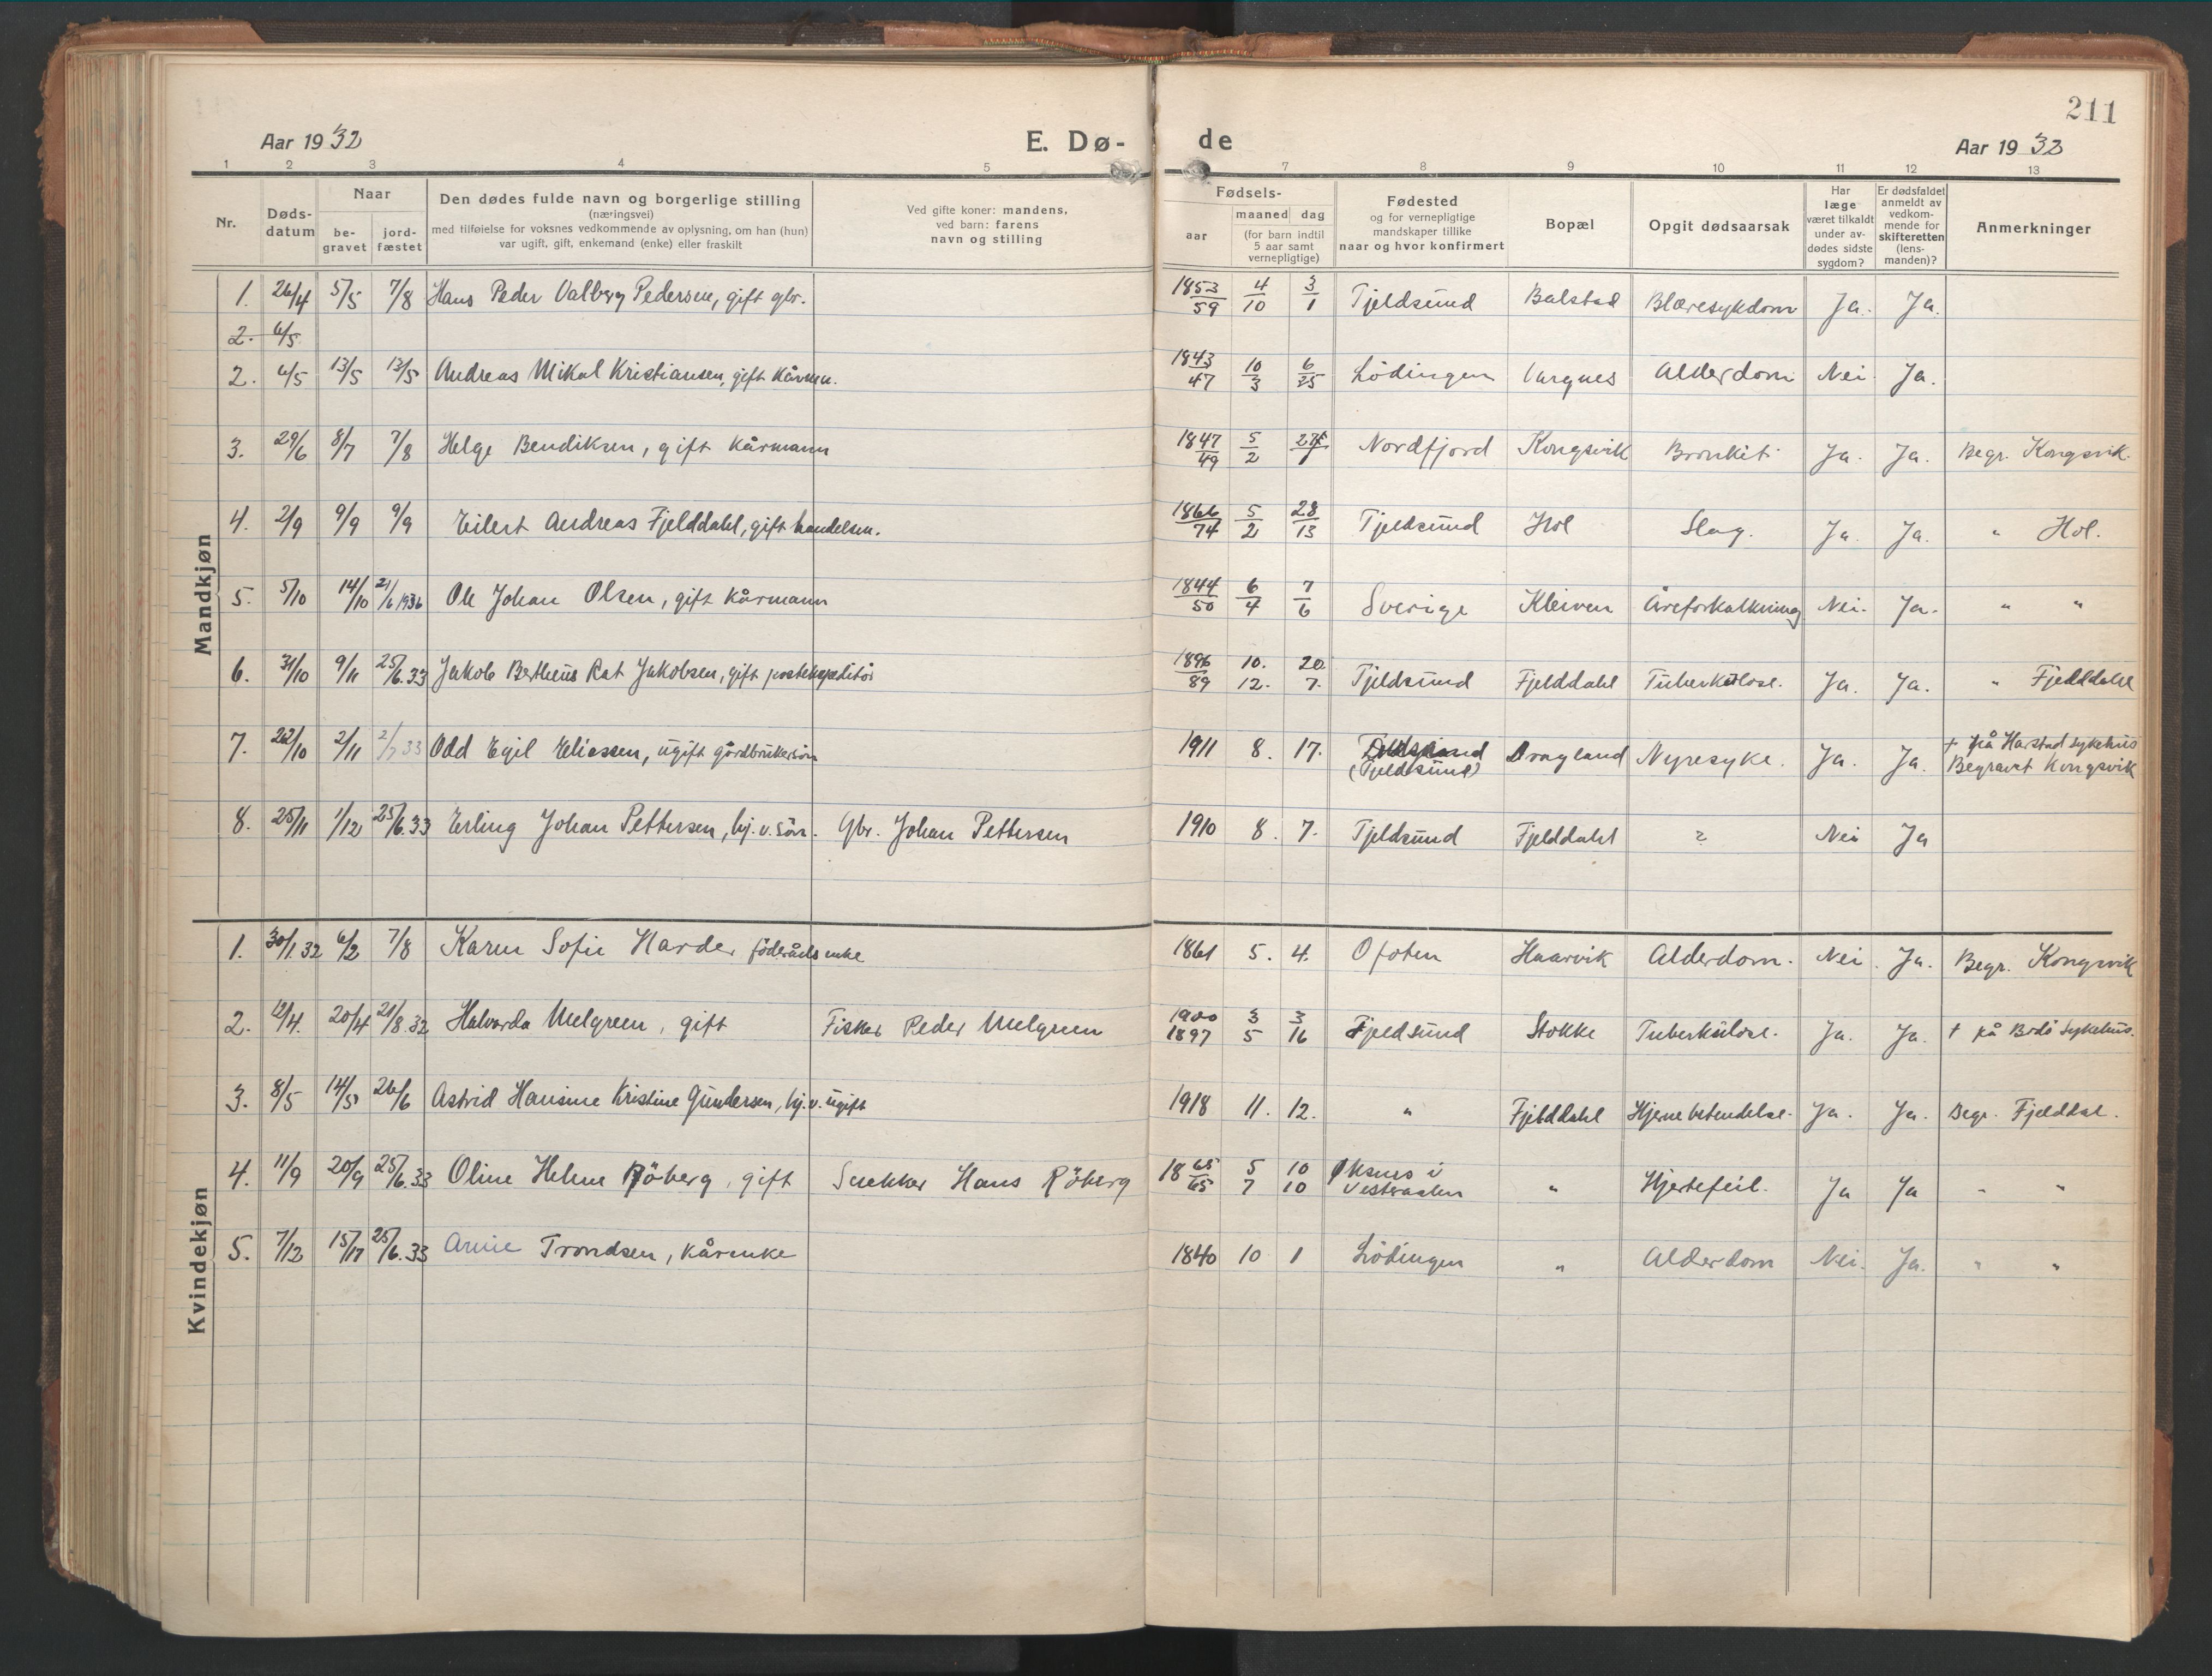 211
Aar 1932 E. Dø- de Aar 1932
1 2 3 4 5 7 8 9 10 11 12 13
Nr.
Døds-
datum
Naar
be-
gravet
jord-
fæstet
Den dødes fulde navn og borgerlige stilling
(næringsvei)
med tilføielse for voksnes vedkommende av oplysning, om han (hun)
var ugift, gift, enkemand (enke) eller fraskilt
Ved gifte koner: mandens,
ved barn: farens
navn og stilling
Fødsels-
aar
maaned dag
(for barn indtil
5 aar samt
vernepligtige)
Fødested
og for vernepligtige
mandskaper tillike
naar og hvor konfirmert
Bopæl
Opgit dødsaarsak
Har
læge
været tilkaldt
under av-
dødes sidste
sygdom?
Er dødsfaldet
anmeldt av
vedkom-
mende for
skifteretten
(lens-
manden)?
Anmerkninger
Mandkjøn
1. 26/4 5/5 7/8 Hans Peder Valberg Pedersen, gift gbr. 1853/59 4/10 3/1 Tjeldsund Balstad Blæresykdom Ja. Ja.
2. 6/5
2. 6/5 13/5 13/5 Andreas Mikal Kristiansen, gift kårm. 1843/47 10/3 6/25 Lödingen Vargnes Alderdom Nei Ja.
3. 29/6 8/7 7/8 Helge Bendiksen, gift kårmann 1847/49 5/2 Nordfjord Kongsvik Bronkit Ja. Ja. Begr. Kongsvik.
4. 2/9 9/9 9/9 Eilert Andreas Fjelddahl, gift handelsm. 1866/74 5/2 28/13 Tjeldsund Hol Slag. Ja. Ja. " Hol.
5. 5/10 14/10 21/6 1936 Ole Johan Olsen, gift kårmann 1844/50 6/4 7/6 Sverige Kleiven Åreforkalkning Nei. Ja. " "
6. 31/10 9/11 25/6.33 Jakob Bertheus Rat Jakobsen, gift postekspeditör 1896/89 10./12. 20/7. Tjeldsund Fjelddahl Tuberkulose. Ja. Ja. " Fjelddahl
7. 22/10 2/11 2/7 33 Odd Egil Eliassen, ugift gårdbrukersön 1911 8. 17. (Tjeldsund) Dragland Nyresyke. Ja. Ja. † på Harstad sykehus
Begravet Kongsvik
8. 25/11 1/12 25/6.33 Erling Johan Pettersen, hj.v. sön. Gbr. Johan Pettersen 1910 8. 7. Tjeldsund Fjelddahl ? Nei Ja
Kvindekjøn
1. 30/1.32 6/2 7/8 Karen Sofie Harder föderåds enke 1861 5. 4. Ofoten Haarvik Alderdom. Nei. Ja. Begr. Kongsvik
2. 12/4. 20/4 21/8.32 Halvarda Melgreen, gift Fisker Peder Melgreen 1900 3 3
1897 5 16 Tjeldsund Stokke Tuberkulose. Ja. Ja. † på Bodö Sykehus.
3. 8/5 14/5 26/6 Astrid Hansine Kristine Gundersen, hj.v. ugift 1918 11. 12. " Fjelddahl Hjernebetendelse. Ja. Ja. Begr. Fjelddal.
4. 11/9 20/9 25/6.33 Oline Helene Röberg, gift Snekker Hans Röberg 1865/65 5/7 10/10 Øksnes i
Vesteraalen " Hjertefeil. Ja Ja " "
5. 7/12 15/17 25/6.33 Trondsen, kårenke 1840 10 1 Lödingen " Alderdom Nei. Ja. " "